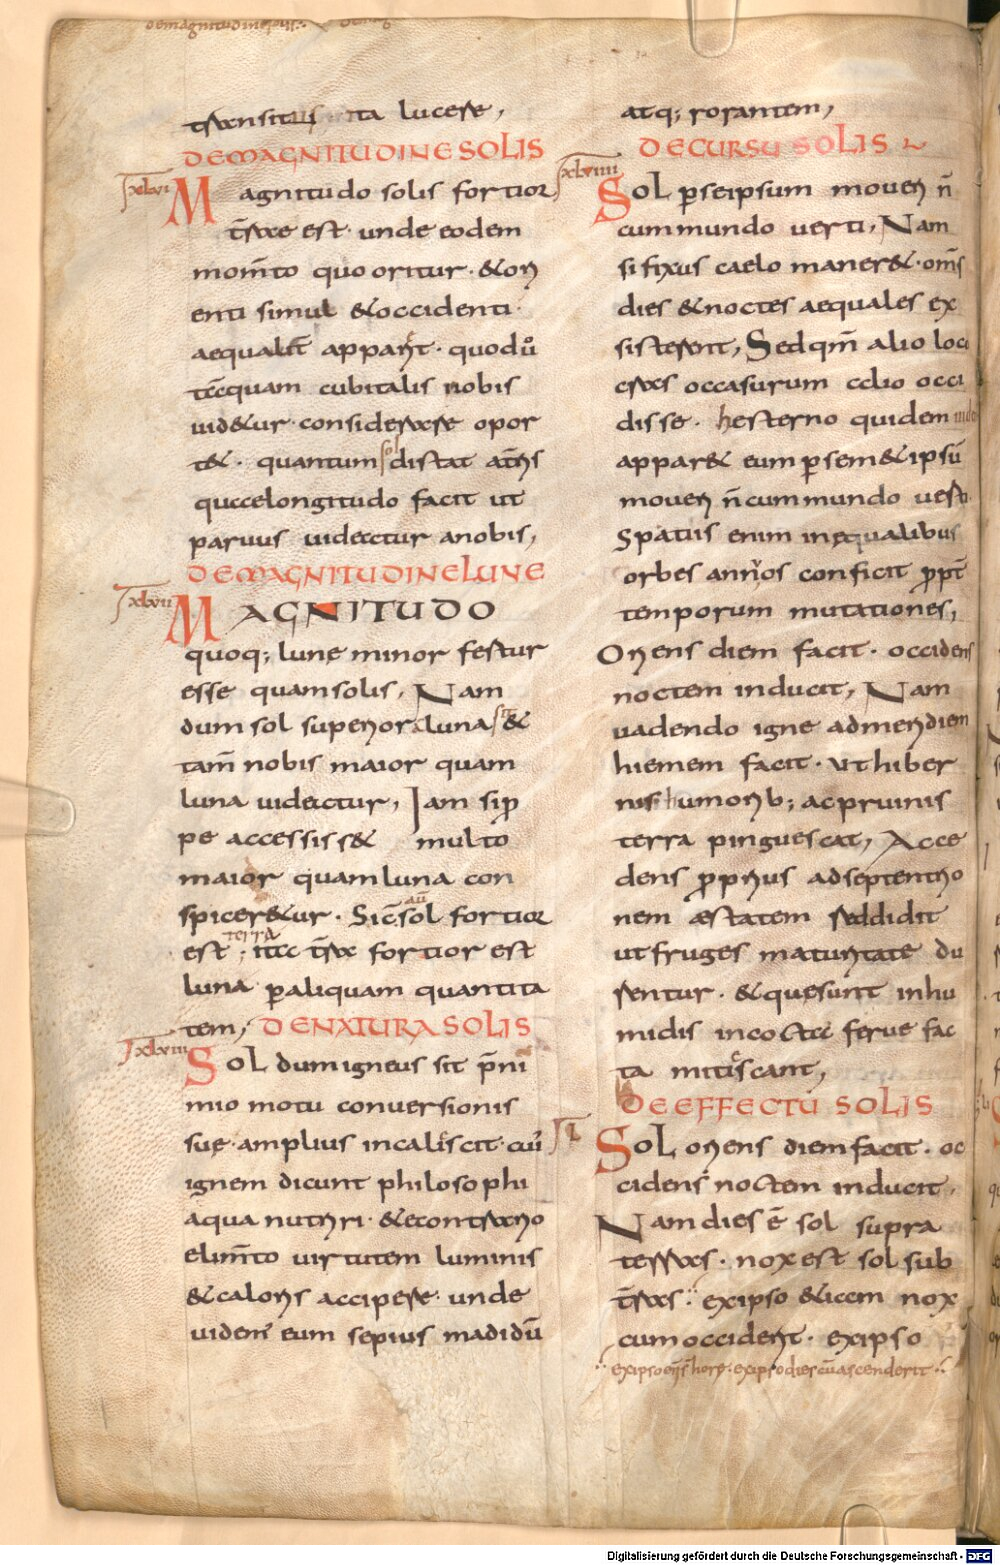 de magnitudine solis
transitus ita lucere,
DE MAGNITUDINE SOLIS
xlvi Magnitudo solis fortior
t̄rae est· unde eodem
mom̄to quo oritur· & ori
enti simul & occidenti·
aequalit̄ apparit· quod ů
tacquam cubitalis nobis
uid&ur· considerare opor
t&· quantum sol distat at̄ris
quae longitudo facit ut
paruus uideatur a nobis,
DE MAGNITUDINE LUNE
xlvii MAGNITUDO
quoq; lune minor fertur
esse quam solis, Nam
dum sol superior a luna sit &
tam̄ nobis maior quam
luna uideatur, Iam si p̄ro
pe accessiss& multo
maior quam luna con
spicer&ur· Sic̄ aū sol fortior
est terra· ita t̄ra fortior est
luna p̄ aliquam quantita
tem, DE NATURA SOLIS
xlviii Sol dum igneus sit p̄ ni
mio motu conuersionis
sue· amplius incalescit· cu᷑
ignem dicunt philosophi
aqua nutriri· & e contrario
elim̄to uirtutem luminis
& caloris accipere· unde
uidem᷑ eum sepius madidū
atq; rorantem,
DE CURSU SOLIS
xlviiii Sol p̄ se ipsum moueri n̄
cum mundo uerti, Nam
si fixus caelo maner&· om̄s
dies & noctes aequales ex
sisterent, Sed qm̄ alio loco
cras occasurum alio occi
disse· hesterno quidem
appar& eum p̄ sem& ipsū
moueri n̄ cum mundo uerti·
Spatiis enim inequalibus
orbes annuos conficit p̄pt̄
temporum mutationes,
Oriens diem facit· occidens
noctem inducit, Nam
uadendo igne ad meridiem
hiemem facit· ut hiber
nis humorib; ac pruinis
terra pinguescat, Acce
dens p̄prius ad septentrio
nem æstatem reddidit
ut fruges maturitate du
rentur· & que sunt in hu
midis incocta ferue fac
ta mitescant,
DE EFFECTU SOLIS
L Sol oriens diem facit· oc
cidens noctem inducit,
Nam dies ē sol supra
terras· nox est sol sub
t̄ras·: ex ipso & iccm nox
cum occiderit· ex ipso
·: ex ipso eni᷑s hore· ex ipso dies cū ascenderit·: